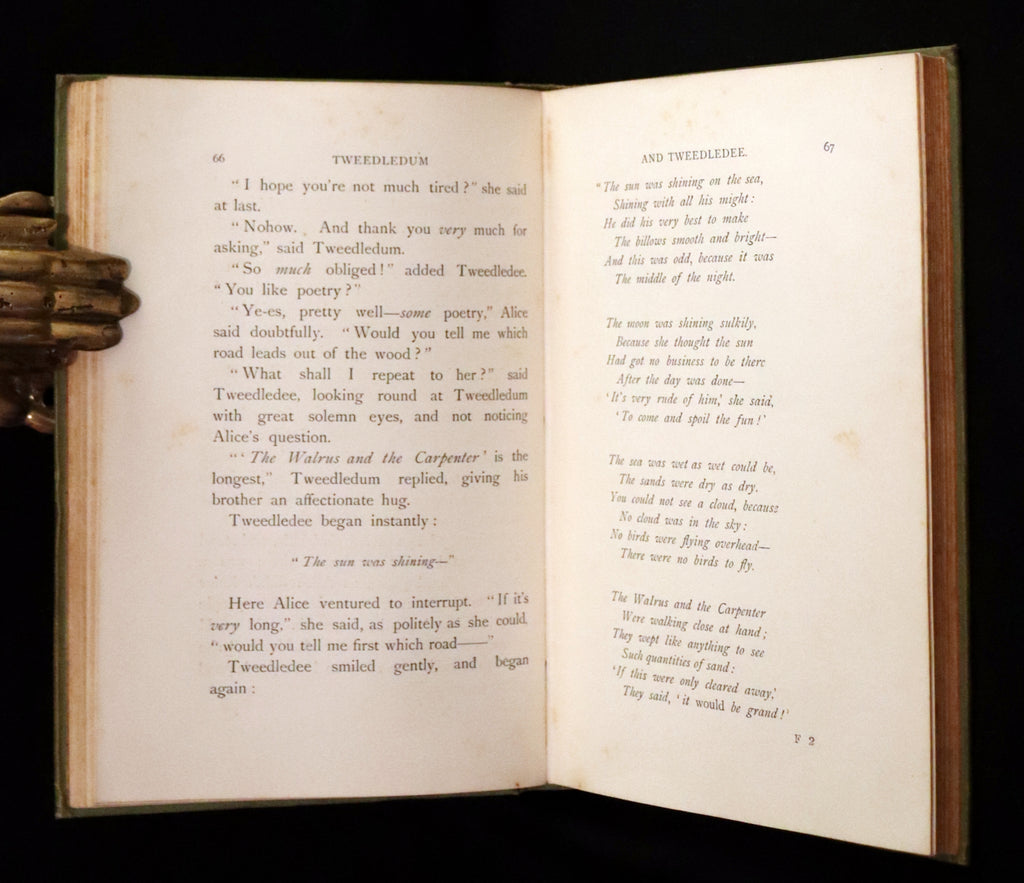 66 TWEEDLEDUM
"I hope you're not much tired?" she said
at last.
"Nohow. And thank you very much for
asking," said Tweedledum.
"So much obliged!" added Tweedledee.
"You like poetry?"
"Ye-es, pretty well—some poetry," Alice
said doubtfully. "Would you tell me which
road leads out of the wood?"
"What shall I repeat to her?" said
Tweedledee, looking round at Tweedledum
with great solemn eyes, and not noticing
Alice's question.
"'The Walrus and the Carpenter' is the
longest," Tweedledum replied, giving his
brother an affectionate hug.
Tweedledee began instantly:
"The sun was shining—"
Here Alice ventured to interrupt. "If it's
very long," she said, as politely as she could,
"would you tell me first which road——"
Tweedledee smiled gently, and began
again:
AND TWEEDLEDEE. 67
"The sun was shining on the sea,
Shining with all his might:
He did his very best to make
The billows smooth and bright—
And this was odd, because it was
The middle of the night.
The moon was shining sulkily,
Because she thought the sun
Had got no business to be there
After the day was done—
'It's very rude of him,' she said,
'To come and spoil the fun!'
The sea was wet as wet could be,
The sands were dry as dry.
You could not see a cloud, because
No cloud was in the sky:
No birds were flying overhead—
There were no birds to fly.
The Walrus and the Carpenter
Were walking close at hand;
They wept like anything to see
Such quantities of sand:
'If this were only cleared away,'
They said, 'it would be grand!'
F 2